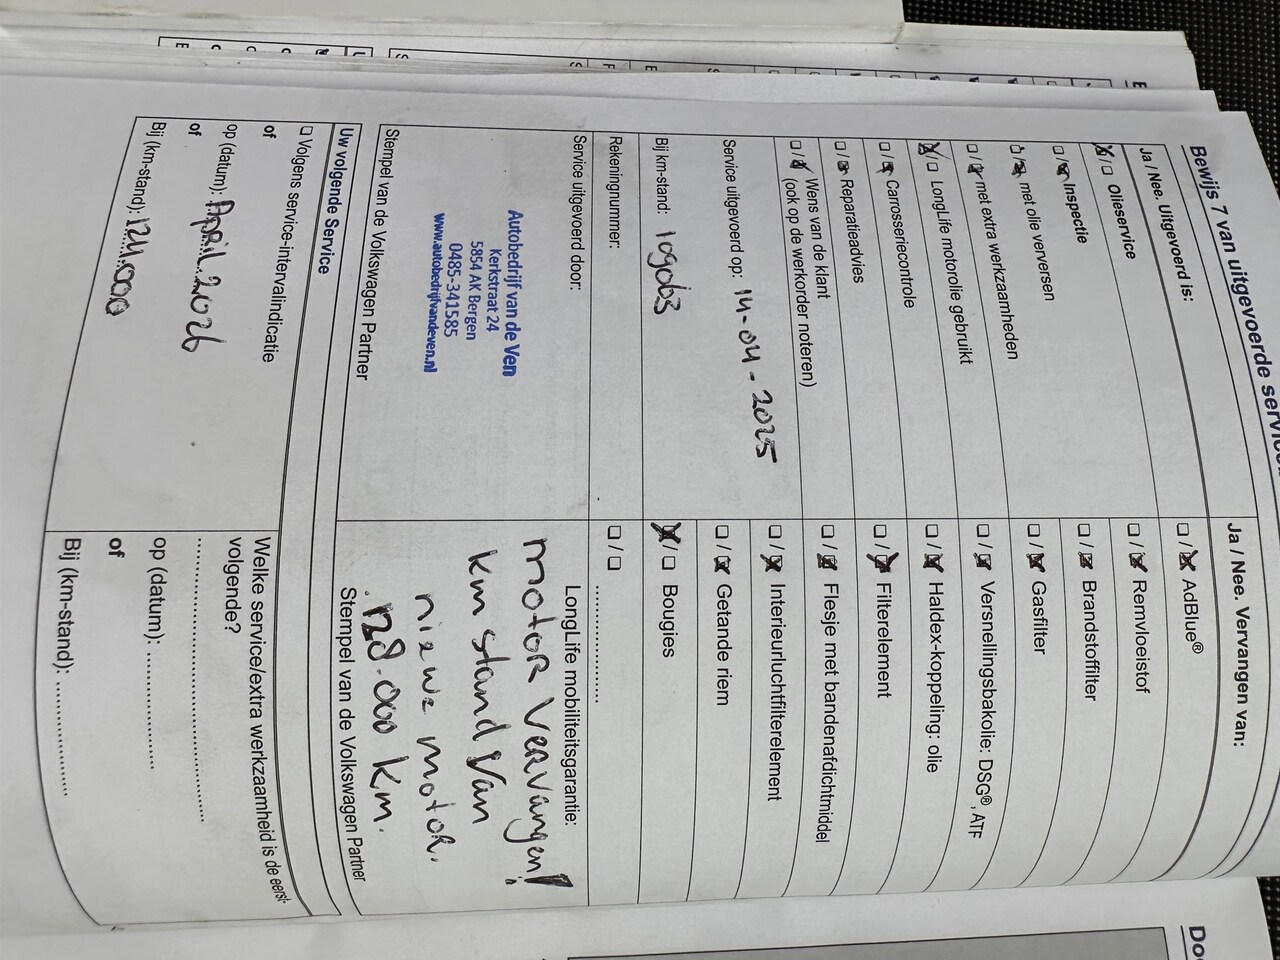 Bewijs 7 van uitgevoerde service
Ja / Nee. Uitgevoerd is:
☒/☐ Olieservice
☐/☒ Inspectie
☐/☒ met olie verversen
☐/☒ met extra werkzaamheden
☒/☐ LongLife motorolie gebruikt
☐/☒ Carrosseriecontrole
☐/☒ Reparatieadvies
☐/☒ Wens van de klant
(ook op de werkorder noteren)
Service uitgevoerd op: 14-04-2025
Bij km-stand: 109063
Rekeningnummer:
Service uitgevoerd door:
Autobedrijf van de Ven
Kerkstraat 24
5854 AK Bergen
0485-341585
www.autobedrijfvandeven.nl
Stempel van de Volkswagen Partner
Ja / Nee. Vervangen van:
☐/☒ AdBlue®
☐/☒ Remvloeistof
☐/☒ Brandstoffilter
☐/☒ Gasfilter
☐/☒ Versnellingsbakolie: DSG®, ATF
☐/☒ Haldex-koppeling: olie
☐/☒ Filterelement
☐/☒ Flesje met bandenafdichtmiddel
☐/☒ Interieurluchtfilterelement
☐/☒ Getande riem
☒/☐ Bougies
☐/☐ ....................
LongLife mobiliteitsgarantie:
motor vervangen!
km stand van
nieuwe motor.
128.000 km.
Stempel van de Volkswagen Partner
Uw volgende Service
☐ Volgens service-intervalindicatie
of
op (datum): April 2026
of
Bij (km-stand): 124.000
Welke service/extra werkzaamheid is de eerst-
volgende?
........................................
op (datum): ....................
of
Bij (km-stand): ....................